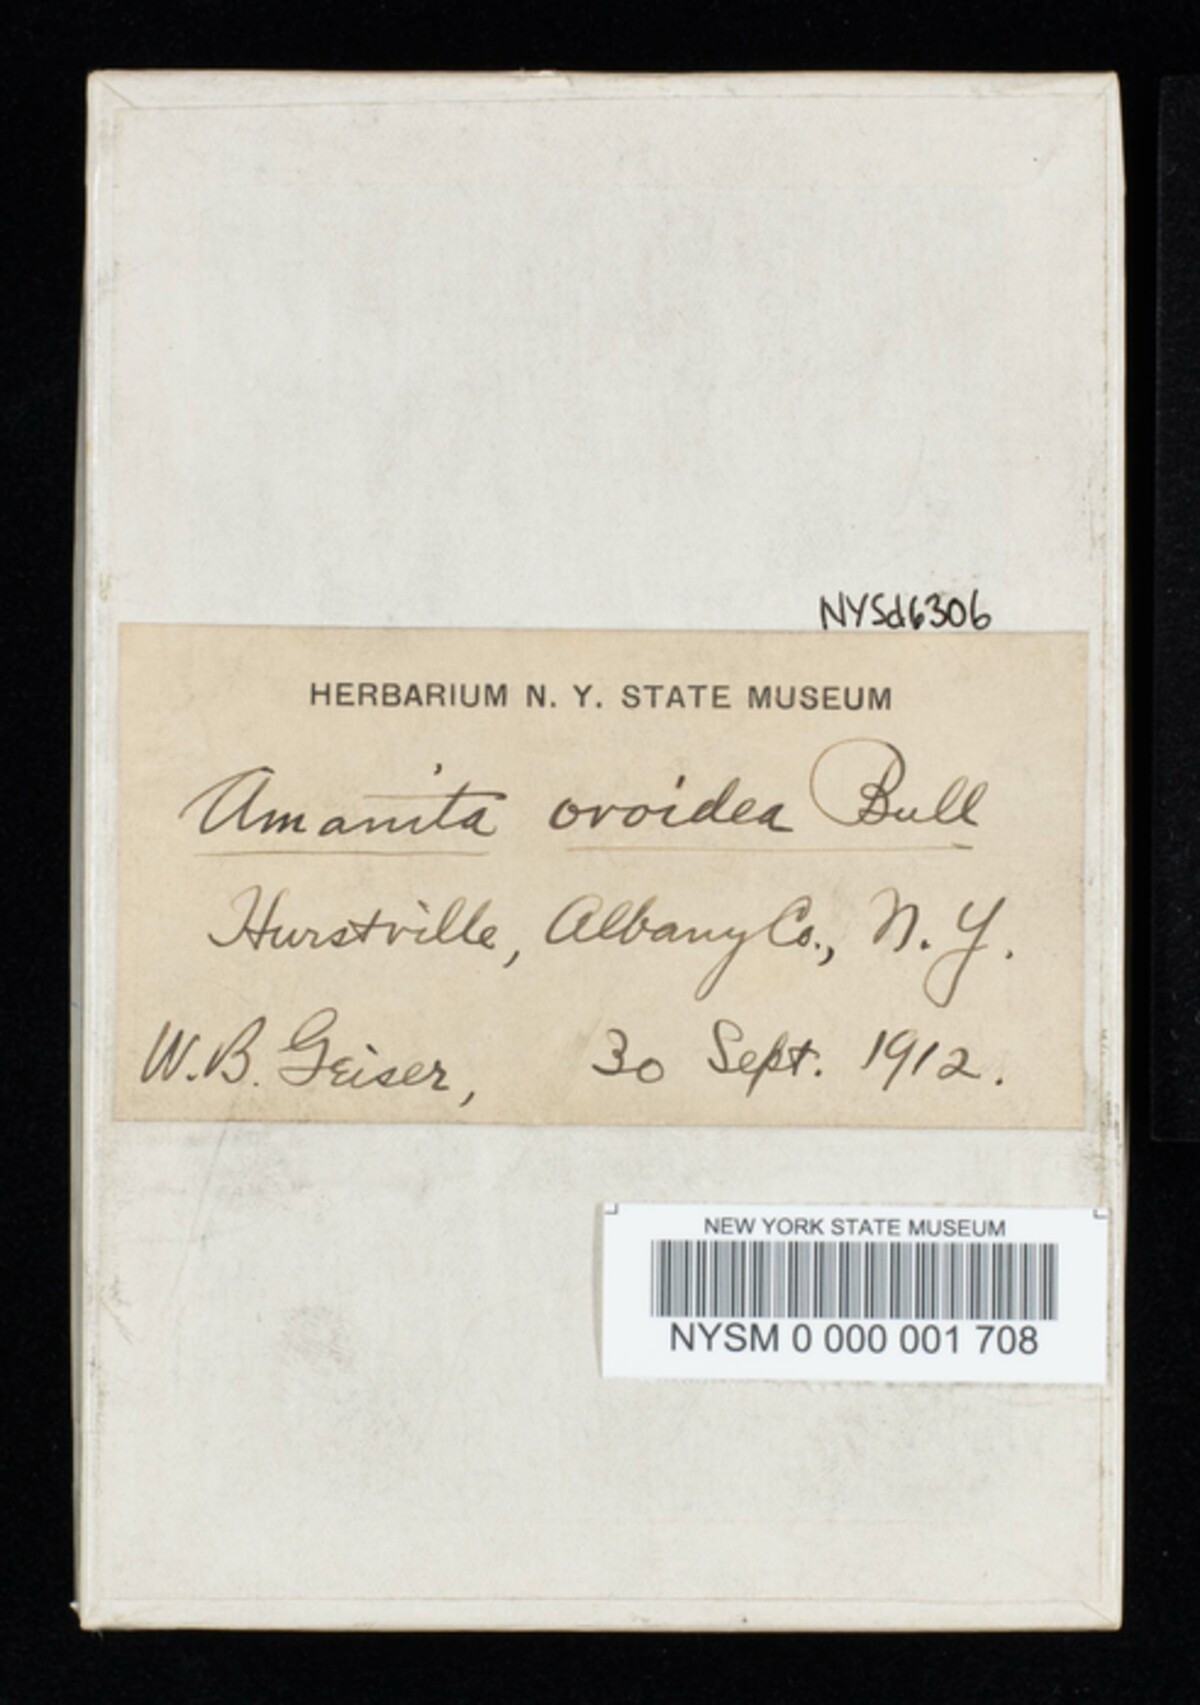 NYSd6306
HERBARIUM N. Y. STATE MUSEUM
Amanita ovoidea Bull
Hurstville, Albany Co., N. Y.
W. B. Geiser, 30 Sept. 1912.
NEW YORK STATE MUSEUM
NYSM 0 000 001 708